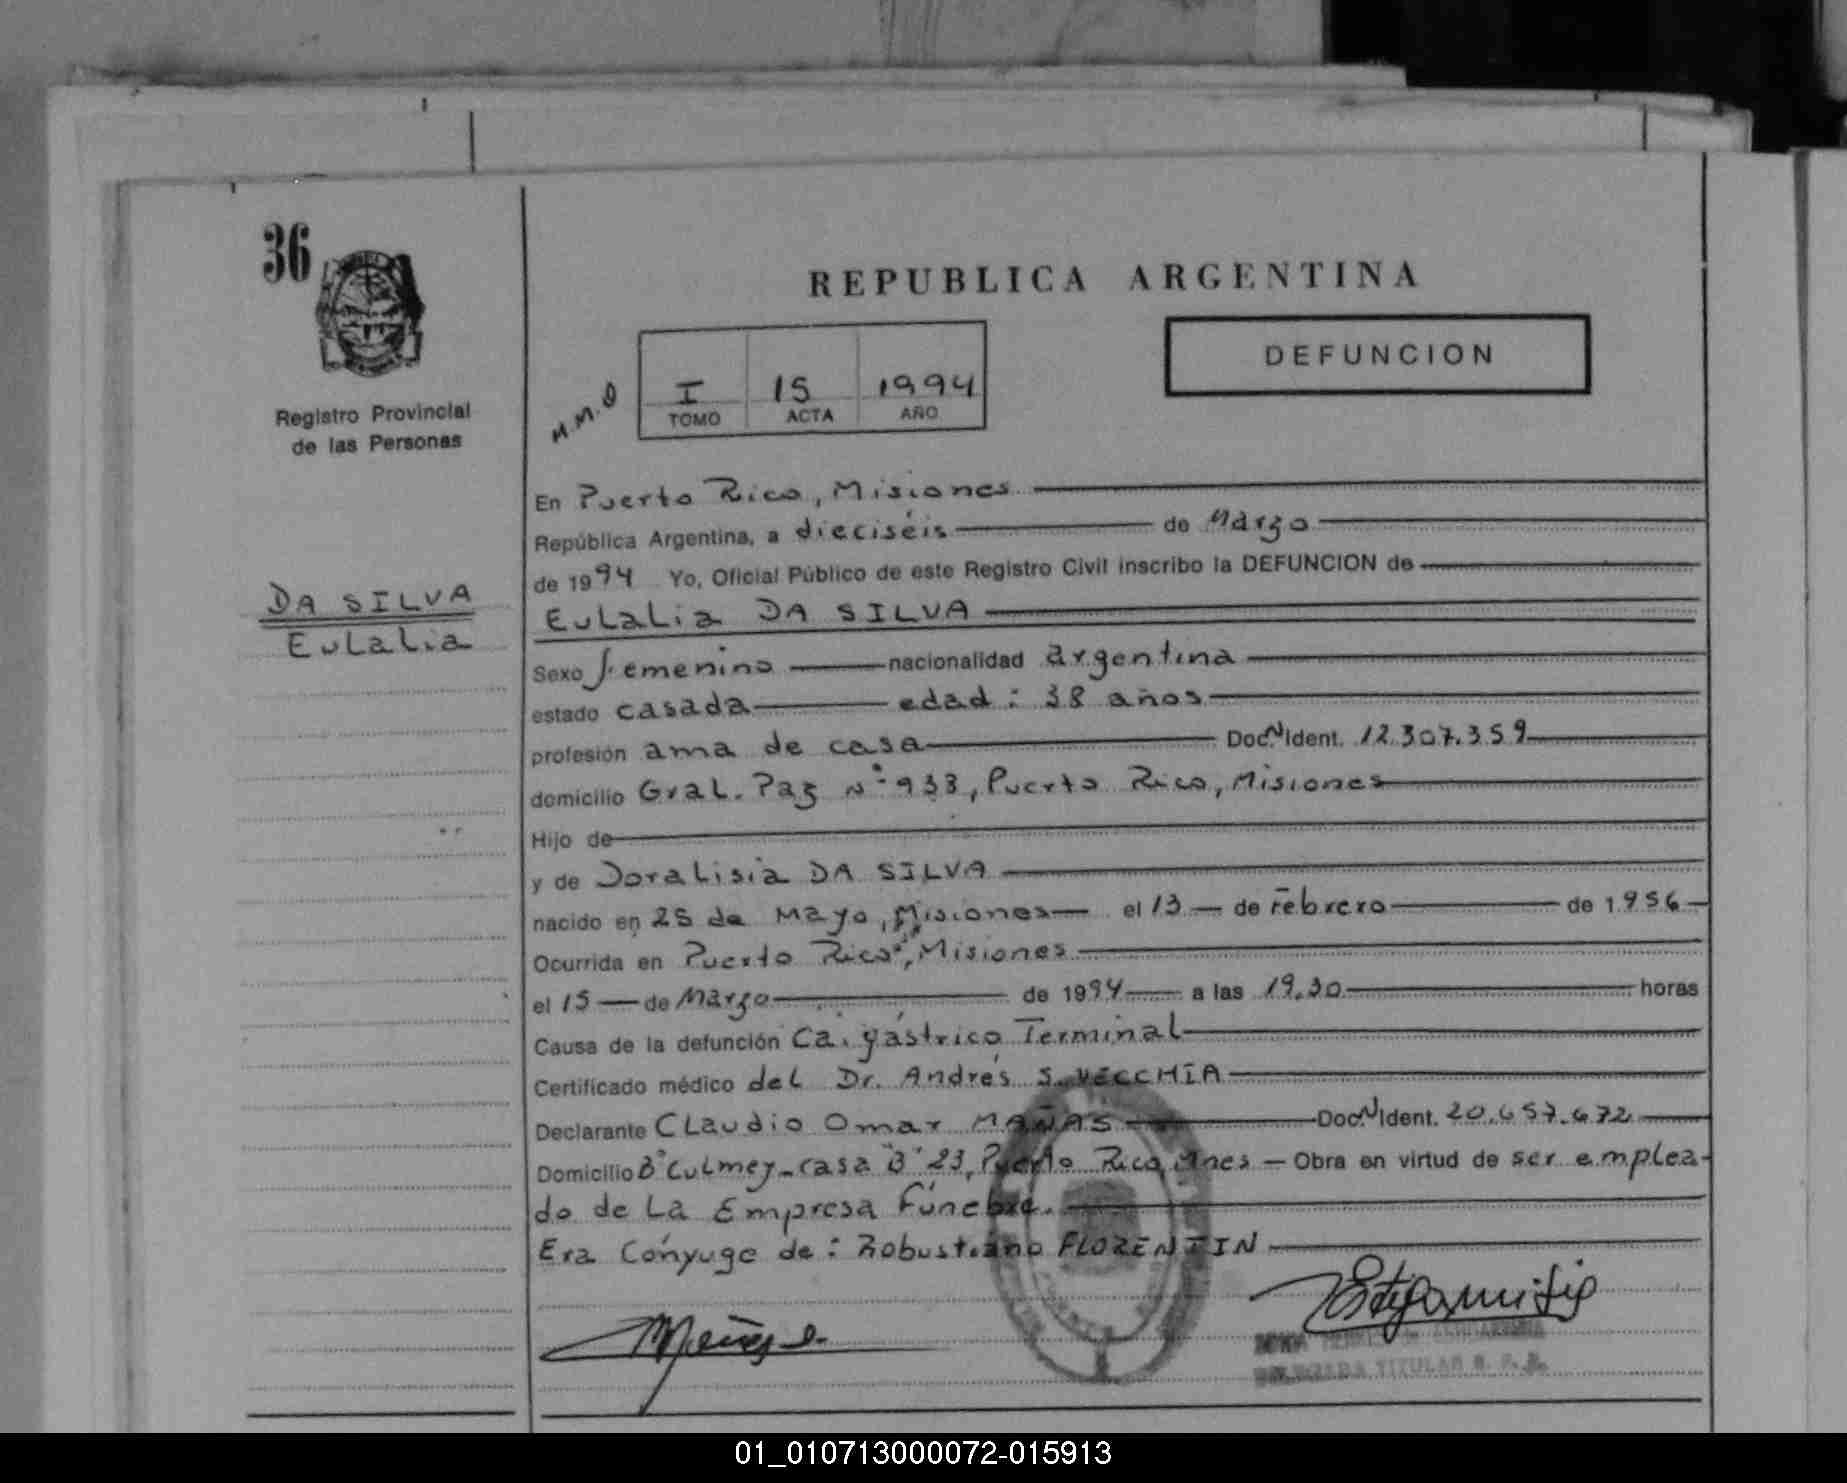 36
Registro Provincial
de las Personas
DA SILVA
Eulalia
REPUBLICA ARGENTINA
M.M.D
I 15 1994
TOMO ACTA AÑO
DEFUNCION
En Puerto Rico, Misiones
República Argentina, a dieciséis de Marzo
de 1994 Yo, Oficial Público de este Registro Civil inscribo la DEFUNCION de
Eulalia DA SILVA
Sexo femenino nacionalidad argentina
estado casada edad: 38 años
profesión ama de casa Doc. N Ident. 12.307.359
domicilio Gral. Paz N° 933, Puerto Rico, Misiones
Hijo de
y de Doralisia DA SILVA
nacido en 25 de Mayo, Misiones el 13 de Febrero de 1956
Ocurrida en Puerto Rico, Misiones
el 15 de Marzo de 1994 a las 19,30 horas
Causa de la defunción Ca. gástrico Terminal
Certificado médico del Dr. Andrés S. VECCHIA
Declarante Claudio Omar MAÑAS Doc. N Ident. 20.657.672
Domicilio B° Culmey - casa "B" 23, Puerto Rico, Mnes - Obra en virtud de ser emplea-
do de La Empresa Fúnebre.
Era Cónyuge de: Robustiano FLORENTIN
TITULAR
01_010713000072-015913